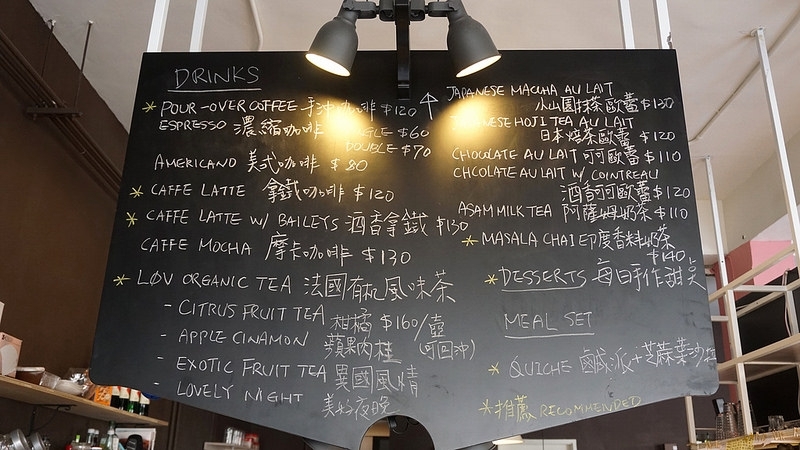 DRINKS
* POUR-OVER COFFEE 手沖咖啡 $120 ↑
ESPRESSO 濃縮咖啡 $60
DOUBLE $70
AMERICANO 美式咖啡 $80
* CAFFE LATTE 拿鐵咖啡 $120
* CAFFE LATTE W/ BAILEYS 酒香拿鐵 $130
CAFFE MOCHA 摩卡咖啡 $130
* LØV ORGANIC TEA 法國有机風味茶
- CITRUS FRUIT TEA 柑橘 $160/壺
- APPLE CINAMON 蘋果肉桂 (可回沖)
- EXOTIC FRUIT TEA 異國風情
- LOVELY NIGHT 美好夜晚
JAPANESE MACCHA AU LAIT
小山園抹茶歐蕾 $130
HOJI TEA AU LAIT
日本焙茶歐蕾 $120
CHOCOLATE AU LAIT 可可歐蕾 $110
CHCOLATE AU LAIT W/ COINTREAU
酒香可可歐蕾 $120
ASAM MILK TEA 阿薩姆奶茶 $110
* MASALA CHAI 印度香料奶茶
$140
* DESSERTS 每日手作甜点
MEAL SET
* QUICHE 鹹派+芝蔴葉沙拉
*推薦 RECOMMENDED